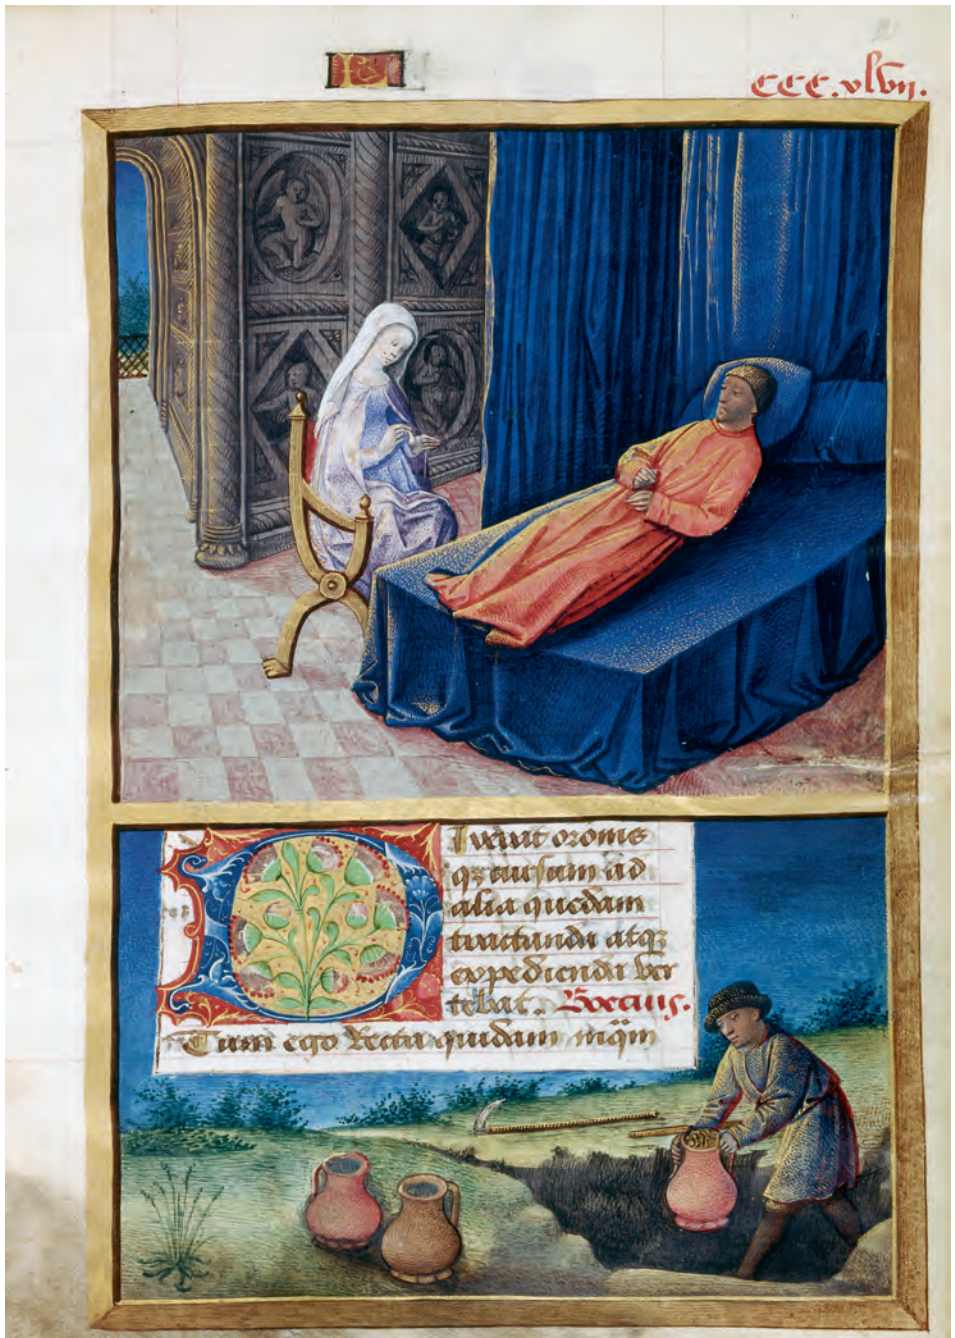 CCC.xlvii.
Dixerat orationis
q; cursum ad
alia quedam
tractanda atq;
expedienda ver
tebat. Boecius.
Tum ego Recta quidam inq̈m